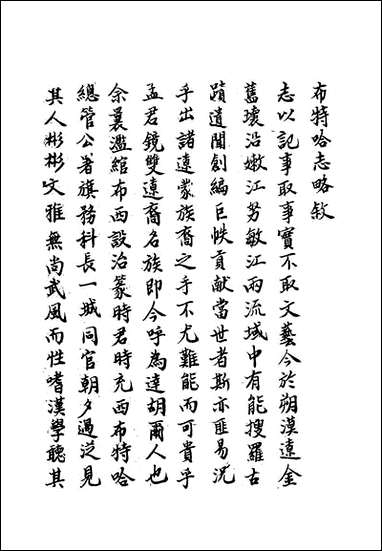 布特哈志略敘
志以記事取事實不取文藝今於朔漠遠金
舊壤沿嫩江努敏江兩流域中有能搜羅古
蹟遺聞創編巨帙貢獻當世者斯亦匪易況
乎出諸遠蒙族裔之手不尤難能而可貴乎
孟君鏡雙遠裔名族即今呼為達胡爾人也
余曩濫綰布西設治篆時君時充西布特哈
總管公署旗務科長一城同官朝夕過從見
其人彬彬文雅無尚武風而性嗜漢學聽其